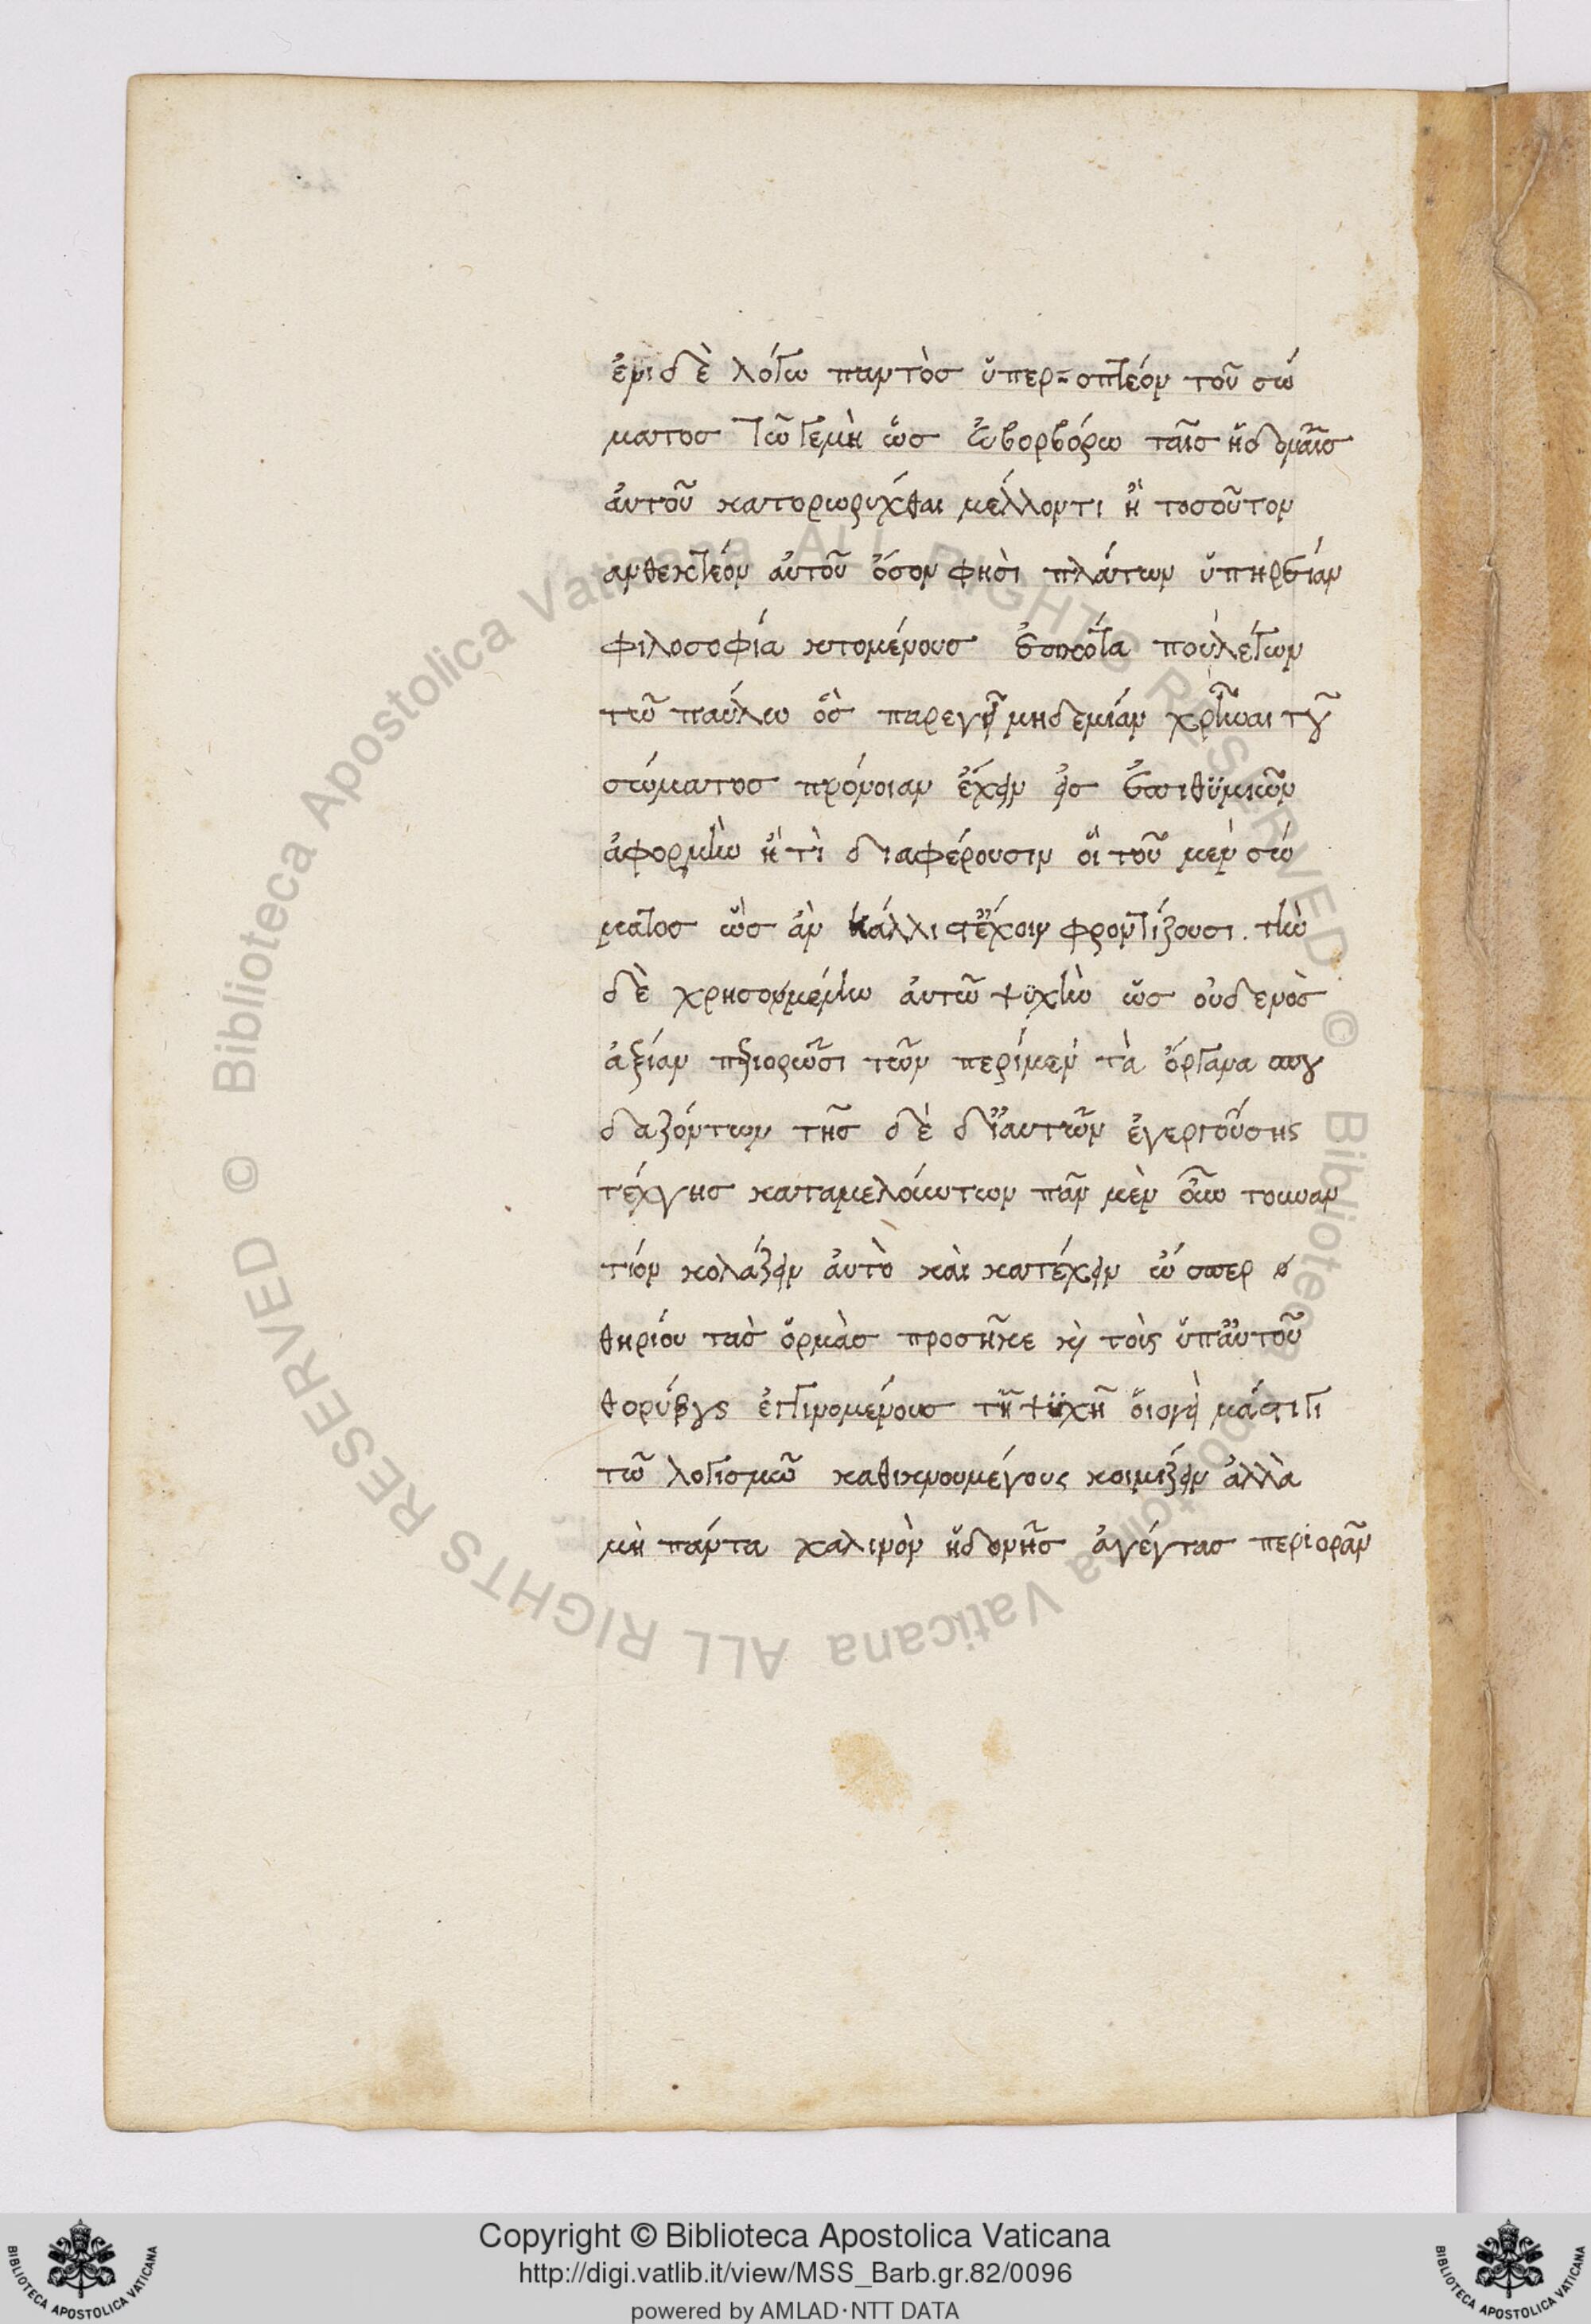 ἑνὶ δὲ λόγω παντὸσ ὑπερ=οπτέον τοῦ σώ
ματοσ τῶ γε μὴ ὡσ ἐν βορβόρω ταῖσ ἡδοναῖσ
ἀυτοῦ κατορωρύχθαι μέλλοντι ἢ τοσοῦτον
ανθεκτέον αὐτοῦ ὅσον φησὶ πλάτων ὑπηρεσίαν
φιλοσοφία κτωμένουσ ἐοικότα που λέγων
τῶ παύλω ὃσ παρενεῖ μηδεμίαν χρῆναι τοῦ
σώματοσ πρόνοιαν ἔχειν εἰσ ἐπιθυμιῶν
ἀφορμὴν ἢ τὶ διαφέρουσιν οἱ τοῦ μεν σώ
ματοσ ὡσ ἀν κάλλιστ ἔχοιν φροντίζουσι. τὴν
δὲ χρησουμένην ἀυτῶ ψυχὴν ὡσ οὐδενὸσ
ἀξίαν περιορῶσι τῶν περί μεν τὰ ὄργανα σπου
δαζόντων τῆσ δὲ δἰ αυτῶν ἐνεργούσης
τέχνησ καταμελούντων πᾶν μὲν οὖν τουναν
τίον κολάζειν ἀυτὸ κὰι κατέχειν ὥσπερ ὁ
θηρίου τασ ὁρμὰσ προσῆκε καὶ τοὶς ὑπ ἀυτοῦ
θορύβους ἐγγινομένουσ τῆ ψυχῆ ὁισνεὶ μάστιγι
τῶ λογισμῶ καθικνουμένους κοιμίζειν ἀλλὰ
μὴ πάντα χαλινὸν ἡδονῆσ ἀνέντασ περιορᾶν
Copyright © Biblioteca Apostolica Vaticana
http://digi.vatlib.it/view/MSS_Barb.gr.82/0096
powered by AMLAD·NTT DATA
BIBLIOTECA APOSTOLICA VATICANA
BIBLIOTECA APOSTOLICA VATICANA
© Biblioteca Apostolica Vaticana ALL RIGHTS RESERVED © Biblioteca Apostolica Vaticana ALL RIGHTS RESERVED